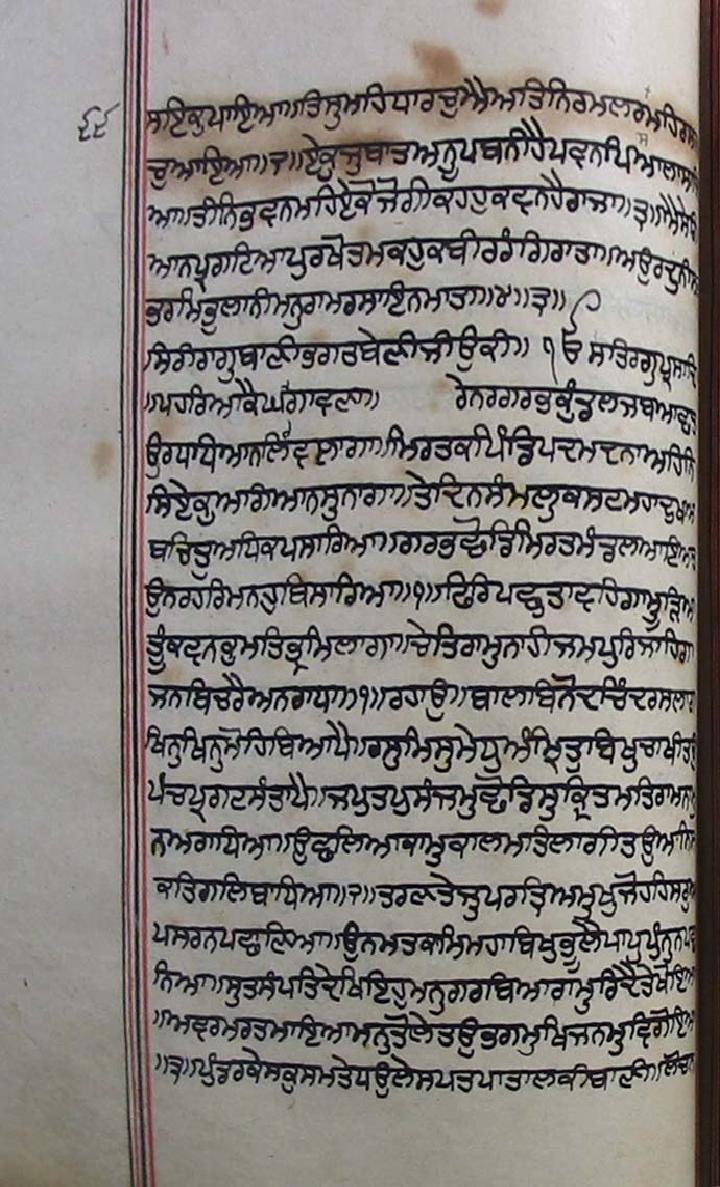 ੬੬
ਸਇਕੁਪਾਇਆ॥ਤਿਸੁਮਹਿਧਾਰਚੁਐਅਤਿਨਿਰਮਲਰਸਮਹਿਰਸ
ਚੁਆਇਆ॥੨॥ਏਕੁਜੁਬਾਤਅਨੂਪਬਨੀਹੈਪਵਨਪਿਆਲਾਸਾਜਿ
ਆ॥ਤੀਨਿਭਵਨਮਹਿਏਕੋਜੋਗੀਕਹਹੁਕਵਨਹੈਰਾਜਾ॥੩॥ਐਸੇਗਿ
ਆਨਪ੍ਰਗਟਿਆਪੁਰਖੋਤਮਕਹੁਕਬੀਰਰੰਗਿਰਾਤਾ॥ਅਉਰਦੁਨੀਸਭ
ਭਰਮਿਭੁਲਾਨੀਮਨੁਰਾਮਰਸਾਇਨਮਾਤਾ॥੪॥੩॥
ਸਿਰੀਰਾਗੁਬਾਣੀਭਗਤਬੇਣੀਜੀਉਕੀ॥ ੧ਓ ਸਤਿਗੁਰਪ੍ਰਸਾਦਿ
॥ਪਹਰਿਆਕੈਘਰਿਗਾਵਣਾ॥ ਰੇਨਰਗਰਭਕੁੰਡਲਜਬਆਛਤ
ਉਰਧਧਿਆਨਲਿਵਲਾਗਾ॥ਮਿਰਤਕਪਿੰਡਿਪਦਮਦਨਾਅਹਿਨਿ
ਸਿਏਕੁਆਗਿਆਨਸੁਨਾਗਾ॥ਤੇਦਿਨਸੰਮਲੁਕਸਟਮਹਾਦੁਖਅ
ਬਚਿਤੁਅਧਿਕਪਸਾਰਿਆ॥ਗਰਭਛੋਡਿਮਿਰਤਮੰਡਲਆਇਆ
ਤਉਨਰਹਰਿਮਨਹੁਬਿਸਾਰਿਆ॥੧॥ਫਿਰਿਪਛੁਤਾਵਹਿਗਾਮੂੜਿਆ
ਤੂੰਕਵਨਕੁਮਤਿਭ੍ਰਮਿਲਾਗਾ॥ਚੇਤਿਰਾਮੁਨਾਹੀਜਮਪੁਰਿਜਾਹਿਗਾ
ਜਨਬਿਚਰੈਅਨਰਾਧਾ॥੧॥ਰਹਾਉ॥ਬਾਲਬਿਨੋਦਚਿੰਦਰਸਲਾਗਾ
ਖਿਨੁਖਿਨੁਮੋਹਿਬਿਆਪੈ॥ਰਸੁਮਿਸੁਮੇਧੁਅੰਮ੍ਰਿਤੁਬਿਖੁਚਾਖੀਤਉ
ਪੰਚਪ੍ਰਗਟਸੰਤਾਪੈ॥ਜਪੁਤਪੁਸੰਜਮੁਛੋਡਿਸੁਕ੍ਰਿਤਮਤਿਰਾਮਨਾਮੁ
ਨਅਰਾਧਿਆ॥ਉਛਲਿਆਕਾਮੁਕਾਲਮਤਿਲਾਗੀਤਉਆਨਿਸ
ਕਤਿਗਲਿਬਾਂਧਿਆ॥੨॥ਤਰੁਣਤੇਜੁਪਰਤ੍ਰਿਅਮੁਖੁਜੋਹਹਿਸਰੁਅ
ਪਸਰਨਪਛਾਣਿਆ॥ਉਨਮਤਕਾਮਿਮਹਾਬਿਖੁਭੂਲੈਪਾਪੁਪੁੰਨੁਨਪਛਾ
ਨਿਆ॥ਸੁਤਸੰਪਤਿਦੇਖਿਇਹੁਮਨੁਗਰਬਿਆਰਾਮੁਰਿਦੈਤੇਖੋਇਆ
॥ਅਵਰਮਰਤਮਾਇਆਮਨੁਤੋਲੇਤਉਭਗਮੁਖਿਜਨਮੁਵਿਗੋਇਆ
॥੩॥ਪੁੰਡਰਕੇਸਕੁਸਮਤੇਧਉਲੇਸਪਤਪਾਤਾਲਕੀਬਾਣੀ॥ਲੋਚਨ